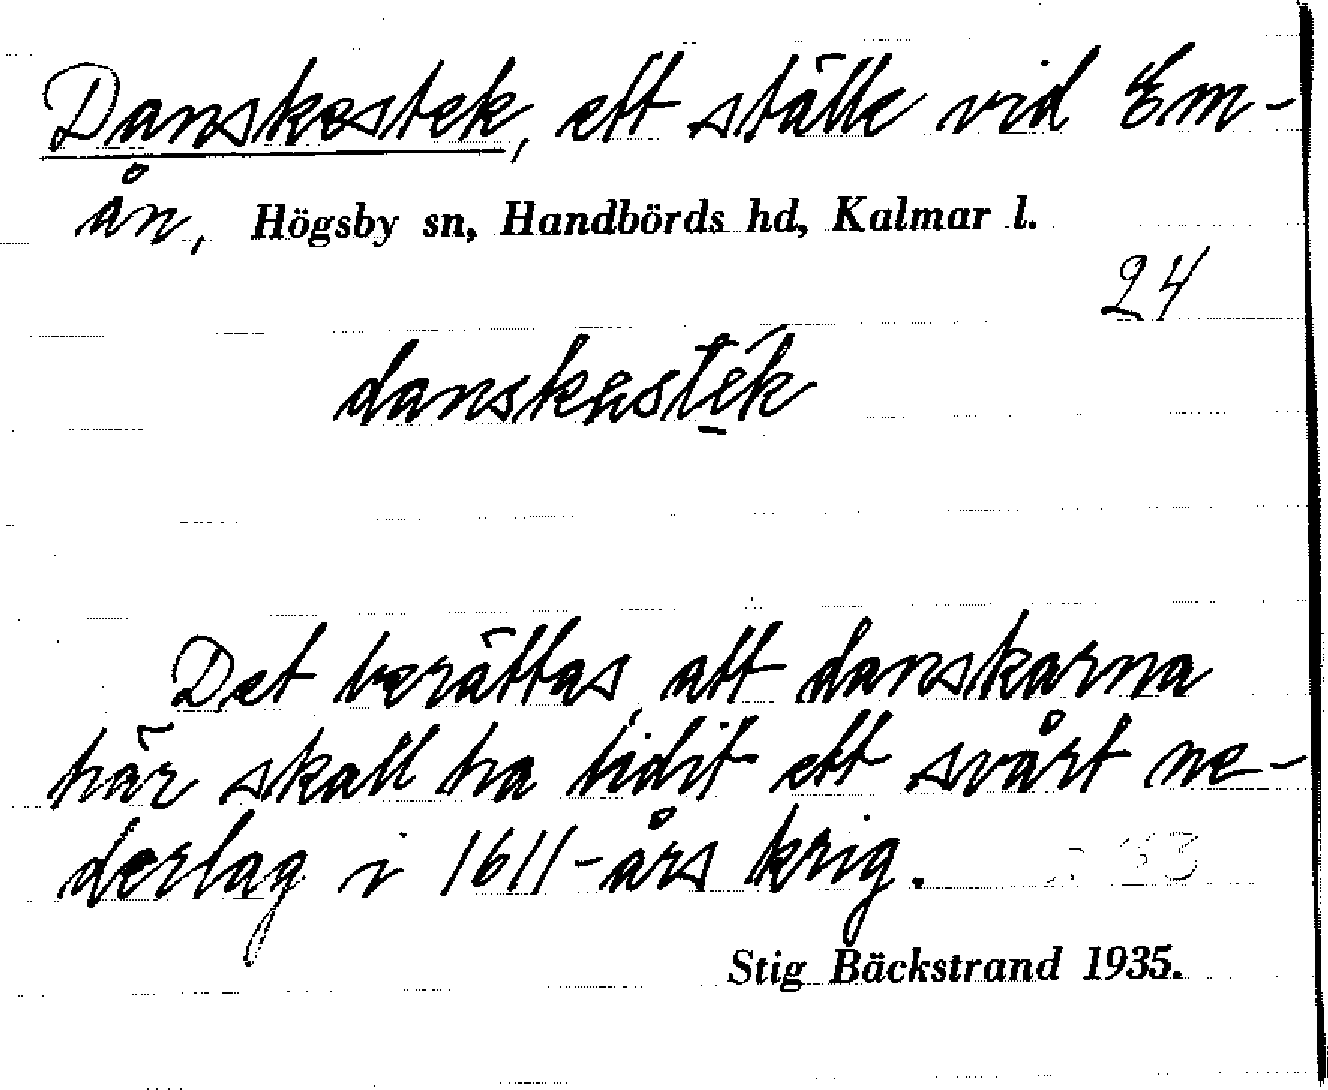 Danskestek, ett ställe vid Em-
ån, Högsby sn, Handbörds hd, Kalmar l.
24
Det berättas, att danskarna
här skall ha lidit ett svårt ne-
derlag i 1611-års krig.
Stig Bäckstrand 1935.